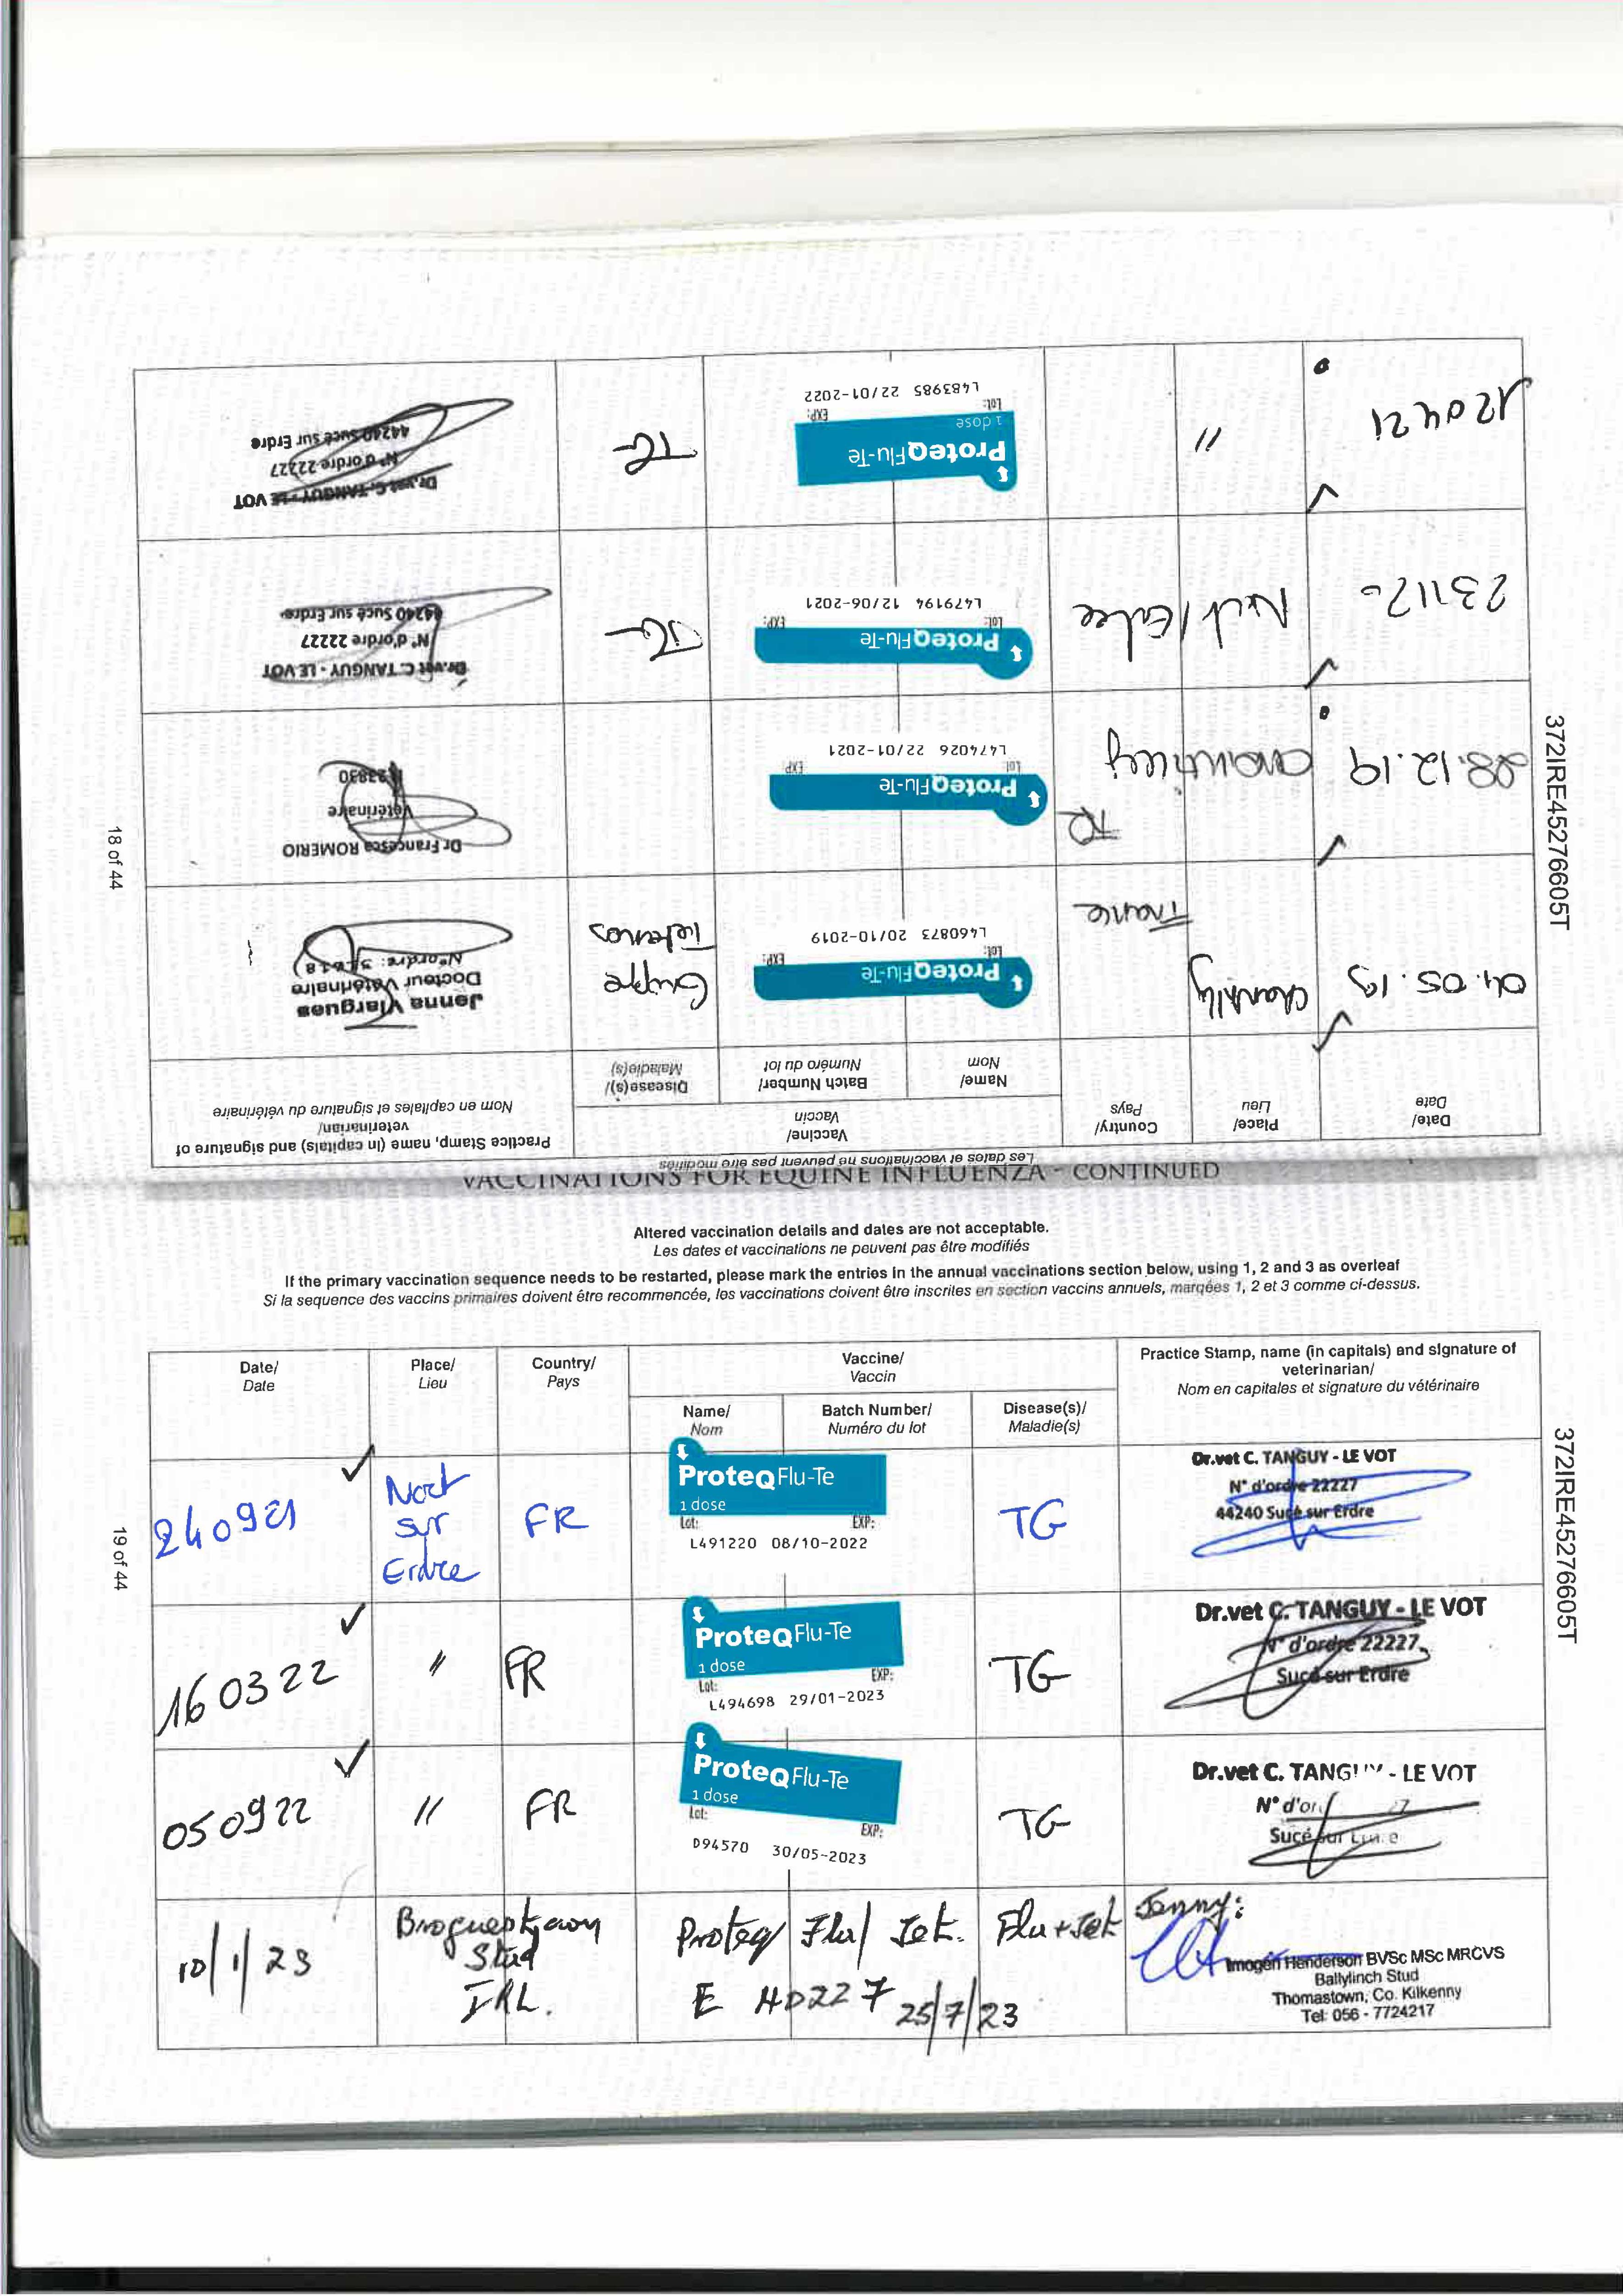 Les dates et vaccinations ne peuvent pas être modifiés
Date/
Date
Place/
Lieu
Country/
Pays
Vaccine/
Vaccin
Name/
Nom
Batch Number/
Numéro du lot
Disease(s)/
Maladie(s)
Practice Stamp, name (in capitals) and signature of
veterinarian/
Nom en capitales et signature du vétérinaire
04.05.19
Chantilly
France
ProteqFlu-Te
Lot: EXP:
L460873 20/10-2019
Grippe
Tetanos
Jenna Viargues
Docteur Vétérinaire
N°ordre:
28.12.19
FR
ProteqFlu-Te
Lot EXP
L474026 22/01-2021
Dr Francesca ROMERIO
Vétérinaire
23830
231120
ProteqFlu-Te
Lot: EXP:
L479194 12/06-2021
TG
Dr.vet C. TANGUY - LE VOT
N° d'ordre 22227
44240 Sucé sur Erdre
120421
"
ProteqFlu-Te
1 dose
Lot: EXP:
L483985 22/01-2022
TG
Dr.vet C. TANGUY - LE VOT
N° d'ordre 22227
44240 Sucé sur Erdre
372IRE45276605T
18 of 44
VACCINATIONS FOR EQUINE INFLUENZA - CONTINUED
Altered vaccination details and dates are not acceptable.
Les dates et vaccinations ne peuvent pas être modifiés
If the primary vaccination sequence needs to be restarted, please mark the entries in the annual vaccinations section below, using 1, 2 and 3 as overleaf
Si la sequence des vaccins primaires doivent être recommencée, les vaccinations doivent être inscrites en section vaccins annuels, marqées 1, 2 et 3 comme ci-dessus.
Date/
Date
Place/
Lieu
Country/
Pays
Vaccine/
Vaccin
Name/
Nom
Batch Number/
Numéro du lot
Disease(s)/
Maladie(s)
Practice Stamp, name (in capitals) and signature of
veterinarian/
Nom en capitales et signature du vétérinaire
240921
Nort
sur
Erdre
FR
ProteqFlu-Te
1 dose
Lot: EXP:
L491220 08/10-2022
TG
Dr.vet C. TANGUY - LE VOT
N° d'ordre 22227
44240 Sucé sur Erdre
160322
"
FR
ProteqFlu-Te
1 dose
Lot: EXP:
L494698 29/01-2023
TG
Dr.vet C. TANGUY - LE VOT
N° d'ordre 22227
Sucé sur Erdre
050922
"
FR
ProteqFlu-Te
1 dose
Lot: EXP:
D94570 30/05-2023
TG
Dr.vet C. TANGUY - LE VOT
N° d'or 27
Sucé sur
10/1/23
Stud
IRL.
Proteq Flu/Tet. Flu+Tet
E HD227 25/7/23
Imogen Henderson BVSc MSc MRCVS
Ballylinch Stud
Thomastown, Co. Kilkenny
Tel: 056 - 7724217
372IRE45276605T
19 of 44